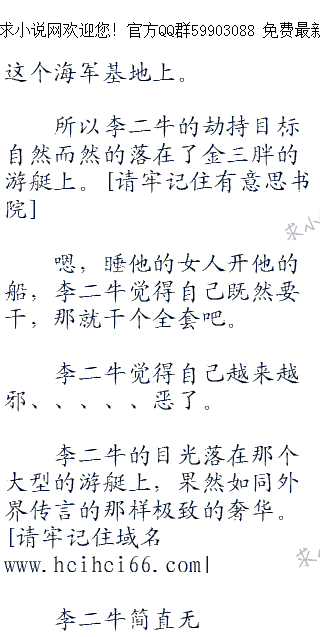 求小说网欢迎您！官方QQ群59903088 免费最新
这个海军基地上。
所以李二牛的劫持目标
自然而然的落在了金三胖的
游艇上。[请牢记住有意思书
院]
求小
嗯，睡他的女人开他的
船，李二牛觉得自己既然要
干，那就干个全套吧。
李二牛觉得自己越来越
邪、、、、、恶了。
李二牛的目光落在那个
大型的游艇上，果然如同外
界传言的那样极致的奢华。
[请牢记住域名
www.hcihci66.com|
求小
李二牛简直无